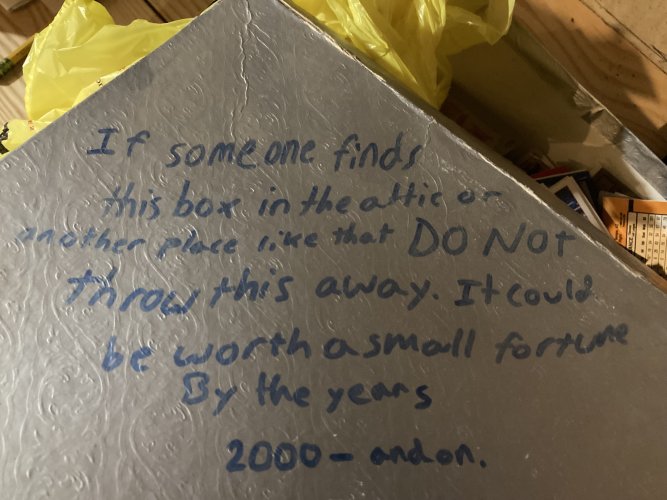 If someone finds
this box in the attic or
another place like that DO NOT
throw this away. It could
be worth a small fortune
By the years
2000 - and on.